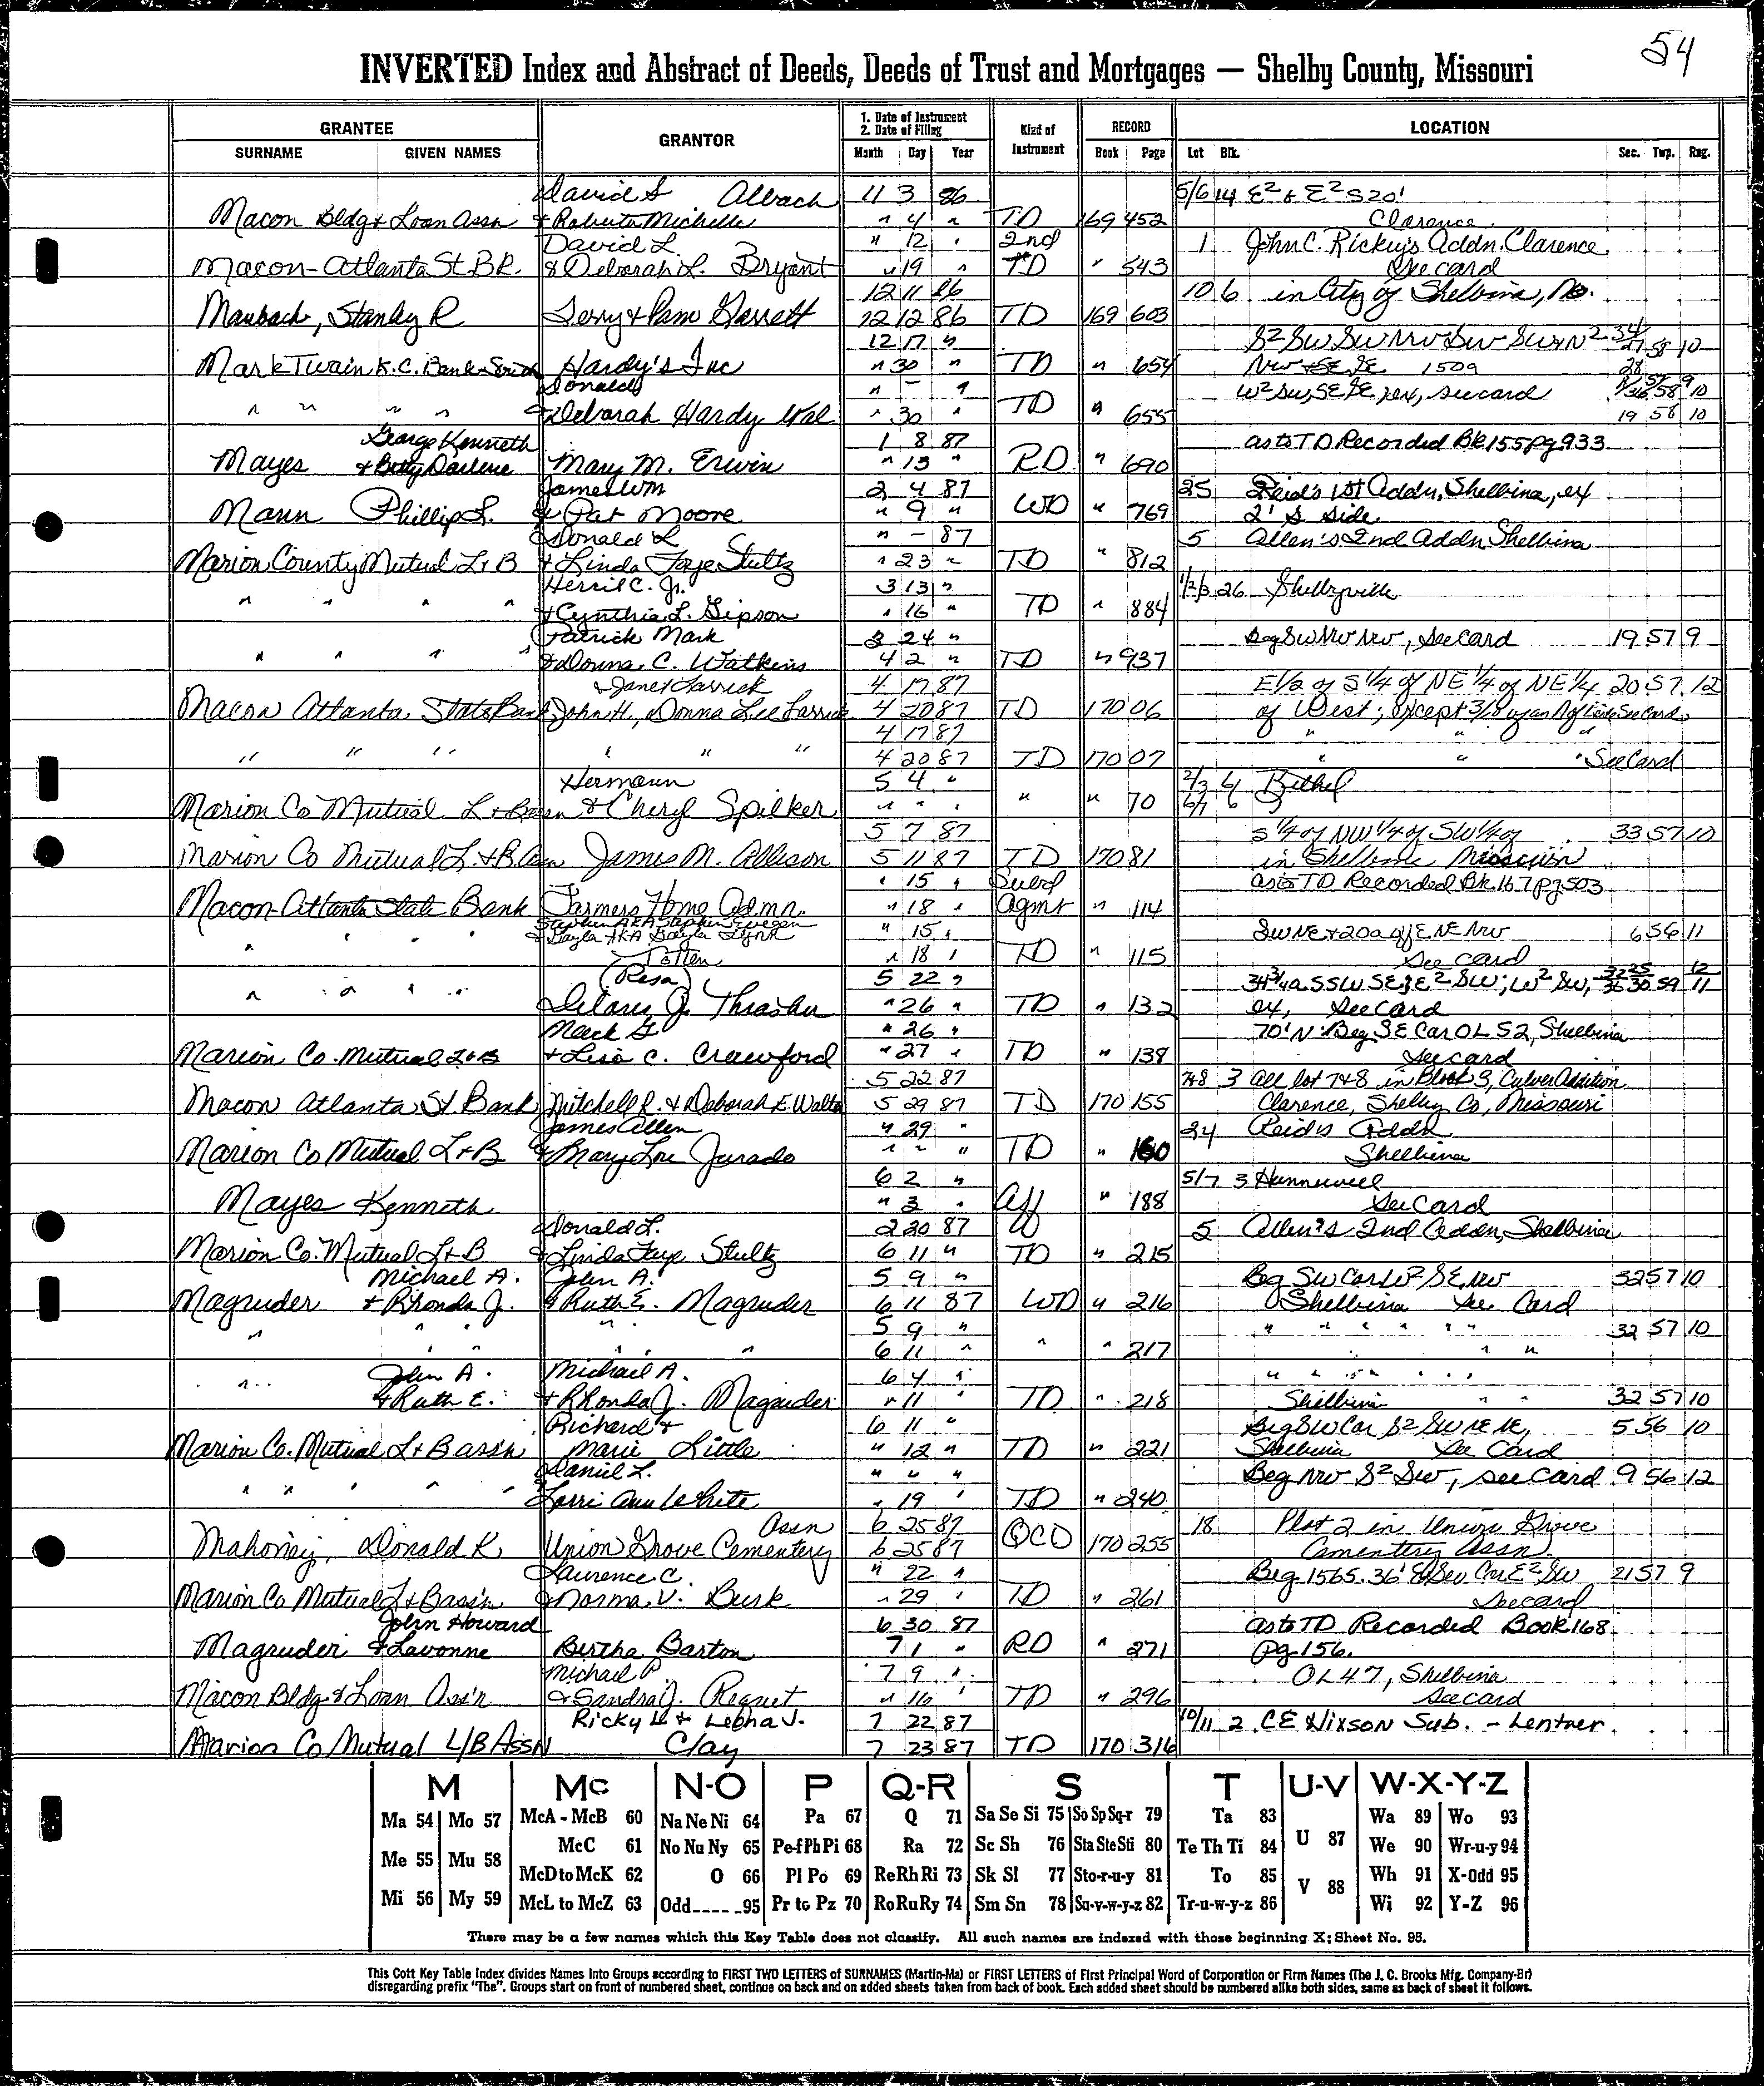 54
INVERTED Index and Abstract of Deeds, Deeds of Trust and Mortgages — Shelby County, Missouri
GRANTEE GRANTOR 1. Date of Instrument 2. Date of Filing Kind of Instrument RECORD LOCATION
SURNAME GIVEN NAMES Month Day Year Book Page Lot Blk. Sec. Twp. Rng.
David S Albach 11 3 86 5/6 14 E² & E² S20'
Macon Bldg & Loan Assn & Roberta Michelle " 4 " TD 169 452 Clarence
David L. " 12 " 2nd 1 John C. Rickey's Addn. Clarence
Macon-Atlanta St BK. & Deborah L. Bryant " 19 " TD " 543 See card
12 11 86 10 6 in City of Shelbina, Mo.
Maubach, Stanley R Terry & Pam Garrett 12 12 86 TD 169 603
12 17 " S² SW SW NW SW SW & N² 34 27 58 10
Mark Twain K.C. Bank South Hardy's Inc " 30 " TD " 654 NW SE SE 150a 28
Donald " - " W² SW, SE SE, ex, see card 36 58 10
" " " " & Deborah Hardy " 30 " TD " 655 19 58 10
George Kenneth 1 8 87 as to TD Recorded Bk 155 pg 933
Mayes & Betty Darlene Mary M. Erwin " 13 " RD " 690
James Wm 2 4 87 25 Reid's 1st Addn, Shelbina, ex
Mann Phillip L. & Pat Moore " 9 " WD " 769 2' S side
Donald L " - 87 5 Allen's 2nd Addn Shelbina
Marion County Mutual L & B & Linda Faye Stultz " 23 " TD " 812
Herril C. Jr. 3 13 " 1/2/3 26 Shelbyville
" " " " & Cynthia L. Gipson " 16 " TD " 884
Patrick Mark 3 24 " Beg SW NW NW, see card 19 57 9
" " " " & Donna C. Watkins 4 2 " TD " 937
& Janet Larrick 4 17 87 E1/2 of S 1/4 of NE 1/4 of NE 1/4 20 57 12
Macon Atlanta State Bank John H., Donna Lee Larrick 4 20 87 TD 170 06 of West; except 3/8 of an A of See Card
4 17 87 " " "
" " " " " " 4 20 87 TD 170 07 " " " See Card
Hermann 5 4 " 2/3 6 Bethel
Marion Co Mutual L & B assn & Cheryl Spilker " " " " " 70 6/7 6
5 7 87 S 1/4 of NW 1/4 of SW 1/4 of 33 57 10
Marion Co Mutual L. & B. Assn James M. Allison 5 11 87 TD 170 81 in Shelbina Missouri
" 15 " Subd as to TD Recorded Bk. 167 pg 503
Macon-Atlanta State Bank Farmers Home Admn. " 18 " agmt " 114
Stephen AKA Stephen Eugene
& Gayla AKA Gayla Lynn " 15 " SW NE & 20a off E NE NW 6 56 11
" " " " Totten " 18 " TD " 115 See card
(Resa) 5 22 " 34 3/4a S SW SE; E² SW; W² SW, 12
" " " " Delores J. Thrasher " 26 " TD " 132 ex, See card 36 30 59 11
Mack G " 26 " 70' N Beg SE Cor OL 52, Shelbina
Marion Co. Mutual L & B & Lisa C. Crawford " 27 " TD " 138 See card
5 22 87 7&8 3 All lot 7 & 8 in Block 3, Culver Addition
Macon Atlanta St Bank Mitchell R. & Deborah K. Walte 5 29 87 TD 170 155 Clarence, Shelby Co, Missouri
James Allen " 29 " 24 Reid's Addn
Marion Co Mutual L & B & Mary Lou Jurado " " " TD " 160 Shelbina
6 2 " 5/7 3 Hunnewell
Mayes Kenneth " 3 " Aff " 188 See Card
Donald L. 2 20 87 5 Allen's 2nd Addn, Shelbina
Marion Co. Mutual L & B & Linda Faye Stultz 6 11 " TD " 215
Michael A. John A. 5 9 " Beg SW Cor W² SE NW 32 57 10
Magruder & Rhonda J. & Ruth E. Magruder 6 11 87 WD " 216 Shelbina See Card
5 9 " " " " " " " 32 57 10
" " " " " " 6 11 " " " 217 " "
John A. Michael A. 6 4 " " " " " " "
" & Ruth E. & Rhonda J. Magruder " 11 " TD " 218 Shelbina " " 32 57 10
Richard & 6 11 " Beg SW Cor S² SW NE NE, 5 56 10
Marion Co. Mutual L & B ass'n Marie Little " 12 " TD " 221 Shelbina See Card
Daniel L. " " " Beg NW S² SW, see card 9 56 12
" " " " Lorri Ann White " 19 " TD " 240
Assn 6 25 87 18 Plot 2 in Union Grove
Mahoney, Donald K Union Grove Cementery 6 25 87 QCD 170 255 Cementery Assn.
Laurence C. " 22 " Beg. 1565.36' E SW Cor E² SW 21 57 9
Marion Co Mutual L & B ass'n & Norma V. Busk " 29 " TD " 261 See card
John Howard 6 30 87 as to TD Recorded Book 168
Magruder & Lavonne Bertha Barton 7 1 " RD " 271 pg 156.
Michael P 7 9 " OL 47, Shelbina
Macon Bldg & Loan Ass'n & Sandra J. Regnet " 16 " TD " 296 see card
Ricky L & Leona J. 7 22 87 10/11 2 CE Hixson Sub. - Lentner.
Marion Co Mutual L/B Assn Clay 7 23 87 TD 170 316
M Mc N-O P Q-R S T U-V W-X-Y-Z
Ma 54 Mo 57 McA - McB 60 Na Ne Ni 64 Pa 67 Q 71 Sa Se Si 75 So Sp Sq-r 79 Ta 83 U 87 Wa 89 Wo 93
Me 55 Mu 58 McC 61 No Nu Ny 65 Pe-f Ph Pi 68 Ra 72 Sc Sh 76 Sta Ste Sti 80 Te Th Ti 84 V 88 We 90 Wr-u-y 94
McD to McK 62 O 66 Pl Po 69 Re Rh Ri 73 Sk Sl 77 Sto-r-u-y 81 To 85 Wh 91 X-Odd 95
Mi 56 My 59 McL to McZ 63 Odd_ _ _ _ _95 Pr to Pz 70 Ro Ru Ry 74 Sm Sn 78 Su-v-w-y-z 82 Tr-u-w-y-z 86 Wi 92 Y-Z 96
There may be a few names which this Key Table does not classify. All such names are indexed with those beginning X; Sheet No. 95.
This Cott Key Table Index divides Names into Groups according to FIRST TWO LETTERS of SURNAMES (Martin-Ma) or FIRST LETTERS of First Principal Word of Corporation or Firm Names (The J. C. Brooks Mfg. Company-Br)
disregarding prefix "The". Groups start on front of numbered sheet, continue on back and on added sheets taken from back of book. Each added sheet should be numbered alike both sides, same as back of sheet it follows.